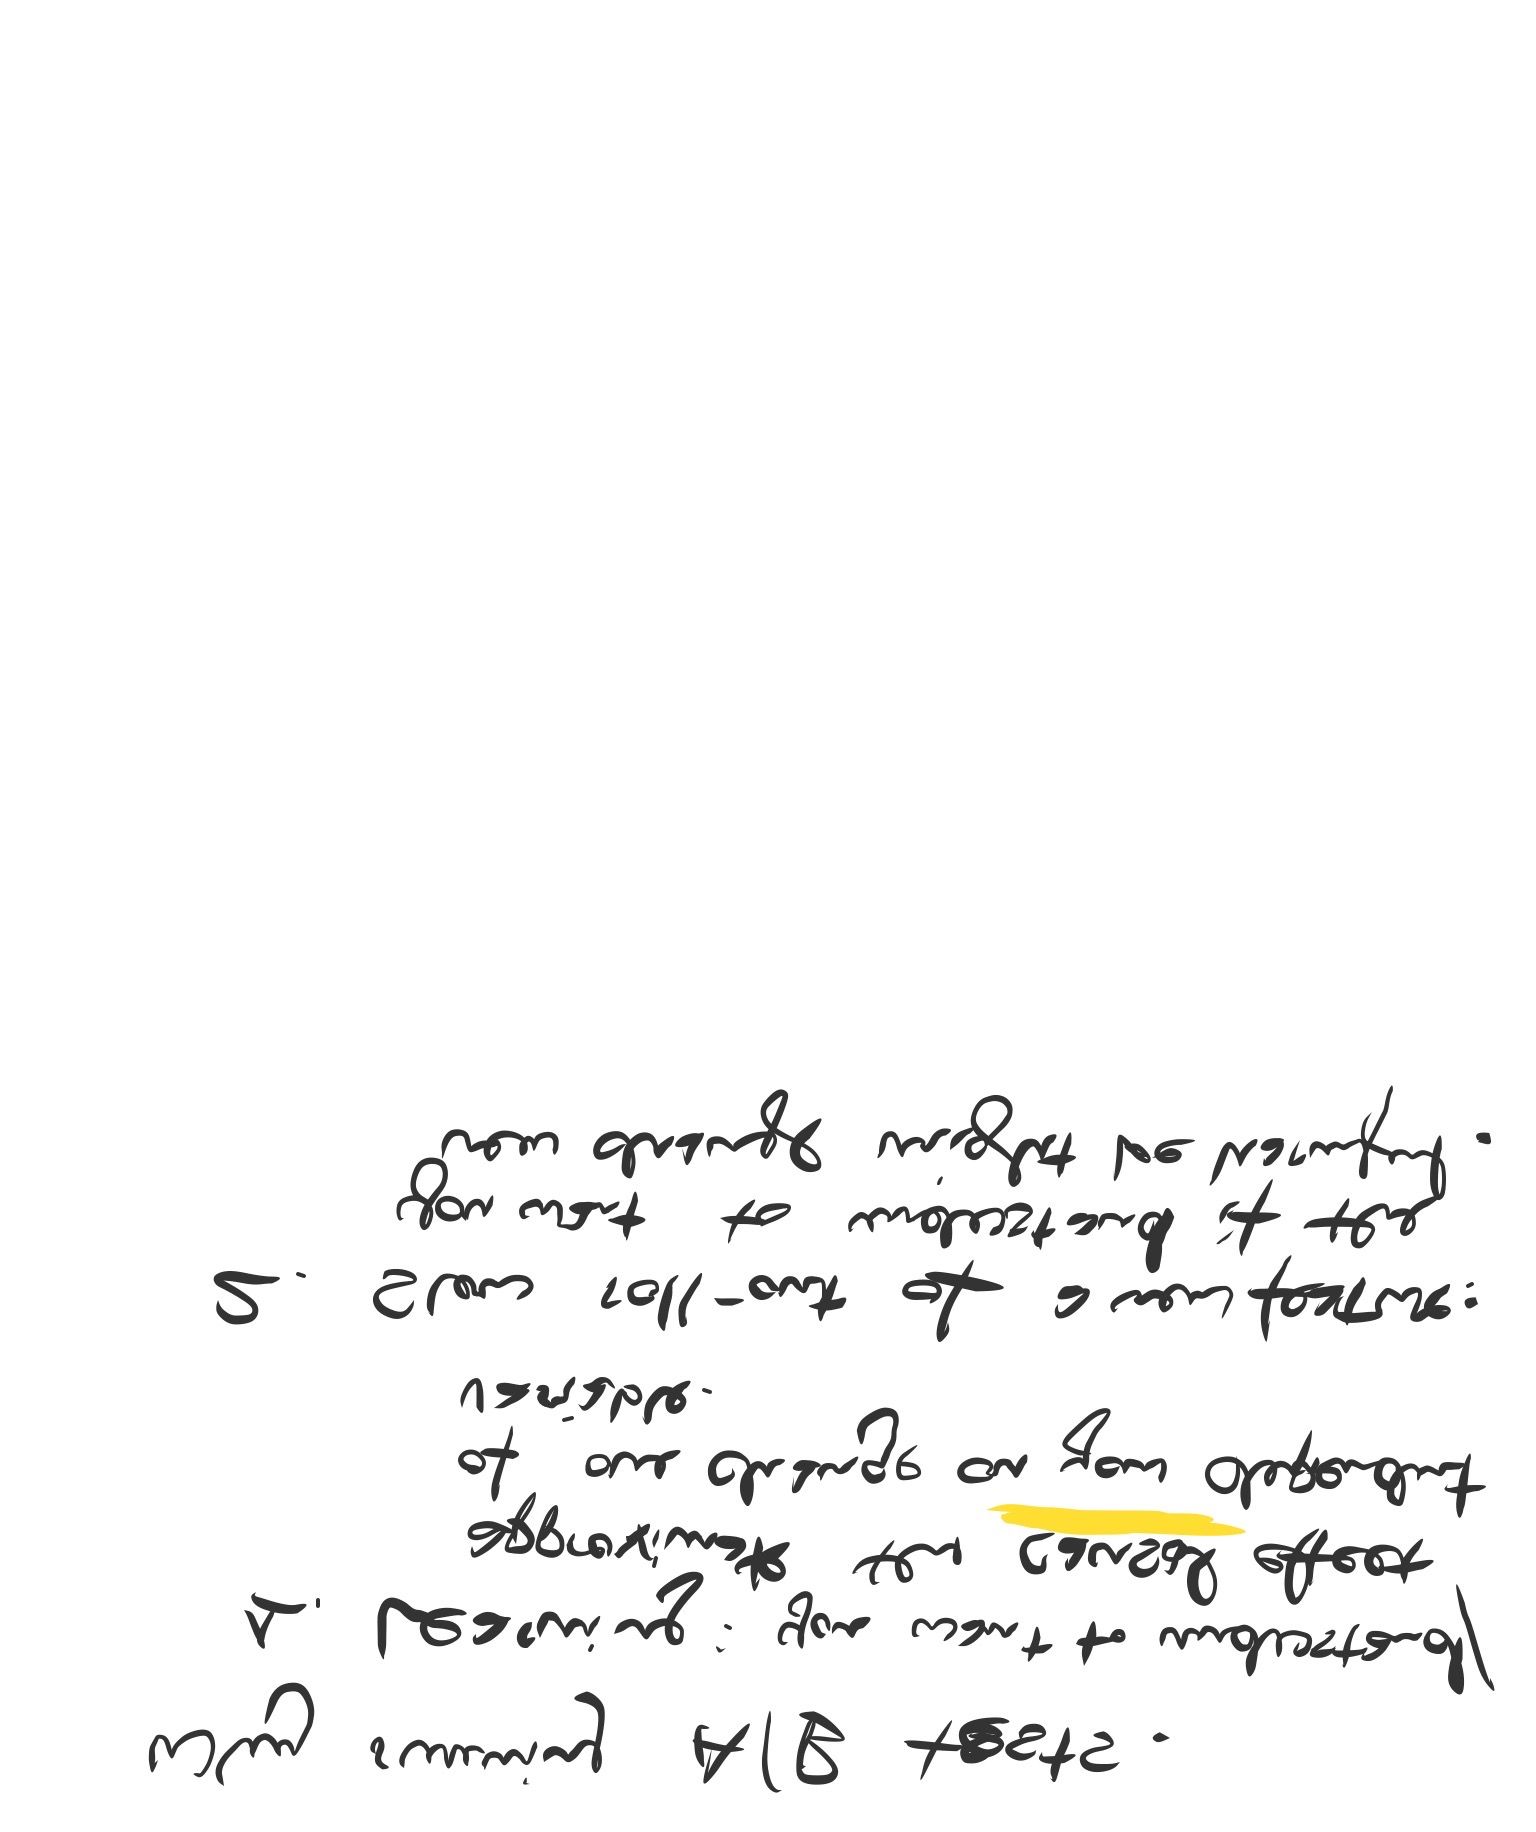 Why running A/B tests.
1. Learning: you want to understand/
approximate the causal effect
of one change on your dependent
variable.
2. Slow roll-out of a new feature:
you want to understand if the
new change might be harmful.